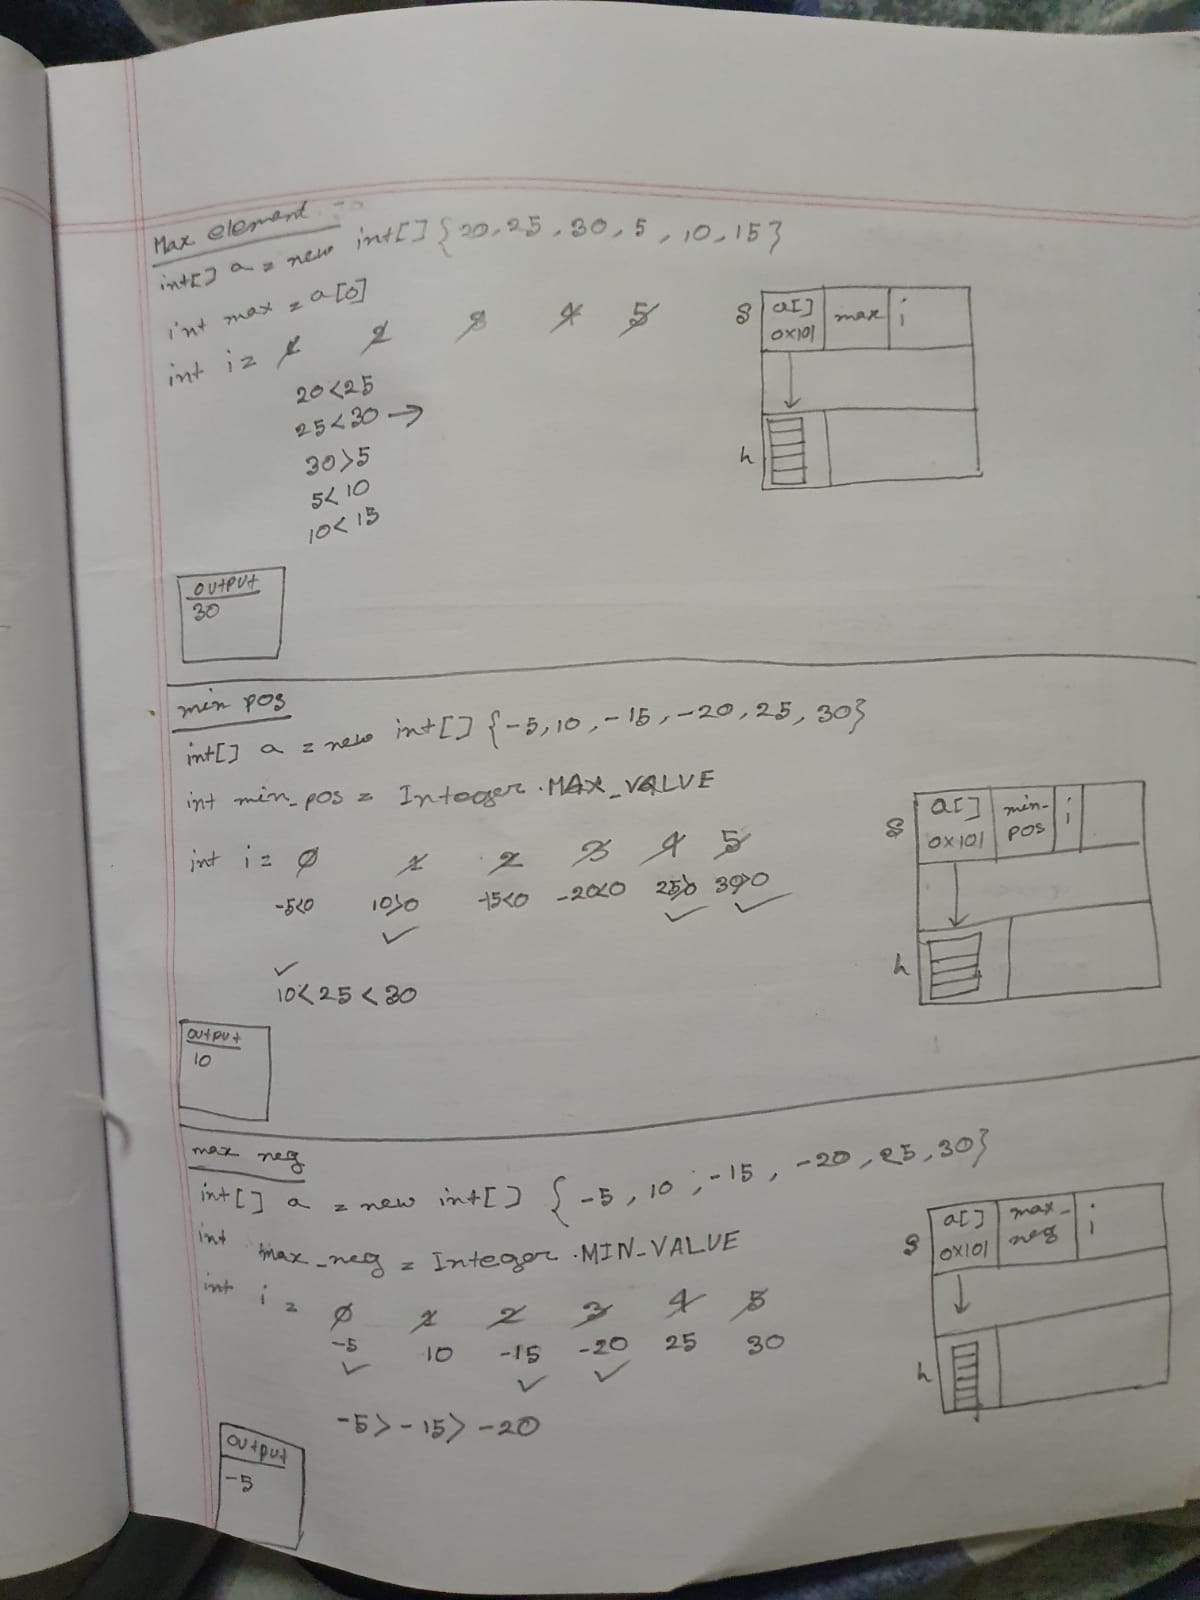 Max element
int[] a = new int[] {20, 25, 30, 5, 10, 15}
int max = a[0]
int i = 1 2 3 4 5
20<25
25<30 →
30>5
5<10
10<15
S a[] max i
0x101
h
output
30
min pos
int[] a = new int[] {-5, 10, -15, -20, 25, 30}
int min_pos = Integer.MAX_VALUE
int i = 0 1 2 3 4 5
-5<0 10>0 -15<0 -20<0 25>0 30>0
✓ ✓ ✓
✓
10<25<30
S a[] min- i
0x101 pos
h
output
10
max neg
int[] a = new int[] {-5, 10, -15, -20, 25, 30}
int max_neg = Integer.MIN_VALUE
int i = 0 1 2 3 4 5
-5 10 -15 -20 25 30
✓ ✓ ✓
-5>-15>-20
S a[] max- i
0x101 neg
h
output
-5